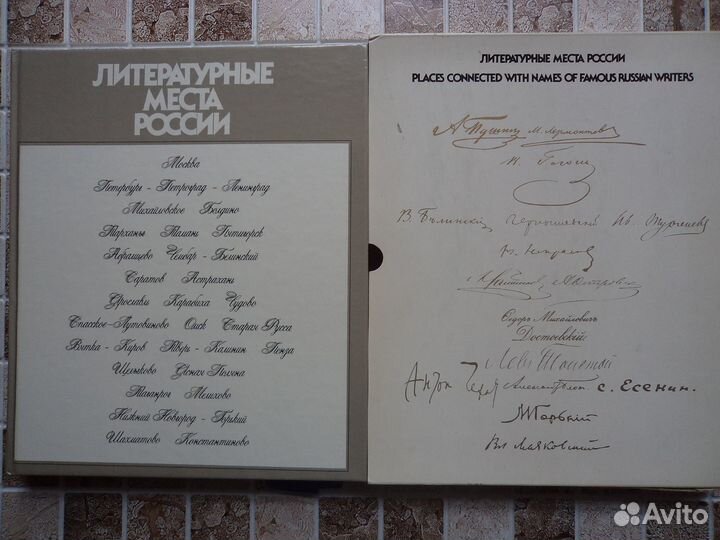 ЛИТЕРАТУРНЫЕ
МЕСТА
РОССИИ
Москва
Петербург - Петроград - Ленинград
Михайловское Болдино
Тарханы Тамань Пятигорск
Абрамцево Чембар - Белинский
Саратов Астрахань
Ярославль Карабиха Чудово
Спасское-Лутовиново Омск Старая Русса
Вятка - Киров Тверь - Калинин Пенза
Щелыково Ясная Поляна
Таганрог Мелихово
Нижний Новгород - Горький
Шахматово Константиново
ЛИТЕРАТУРНЫЕ МЕСТА РОССИИ
PLACES CONNECTED WITH NAMES OF FAMOUS RUSSIAN WRITERS
А Пушкин М. Лермонтов
Н. Гоголь
В. Бѣлинскій Чернышевскій Ив. Тургеневъ
Н. Некрасов
Ѳедоръ Михайловичъ
Достоевскій
Левъ Толстой
Антон Чехов Александръ Блок С. Есенин.
М Горький
Вл Маяковский
Avito